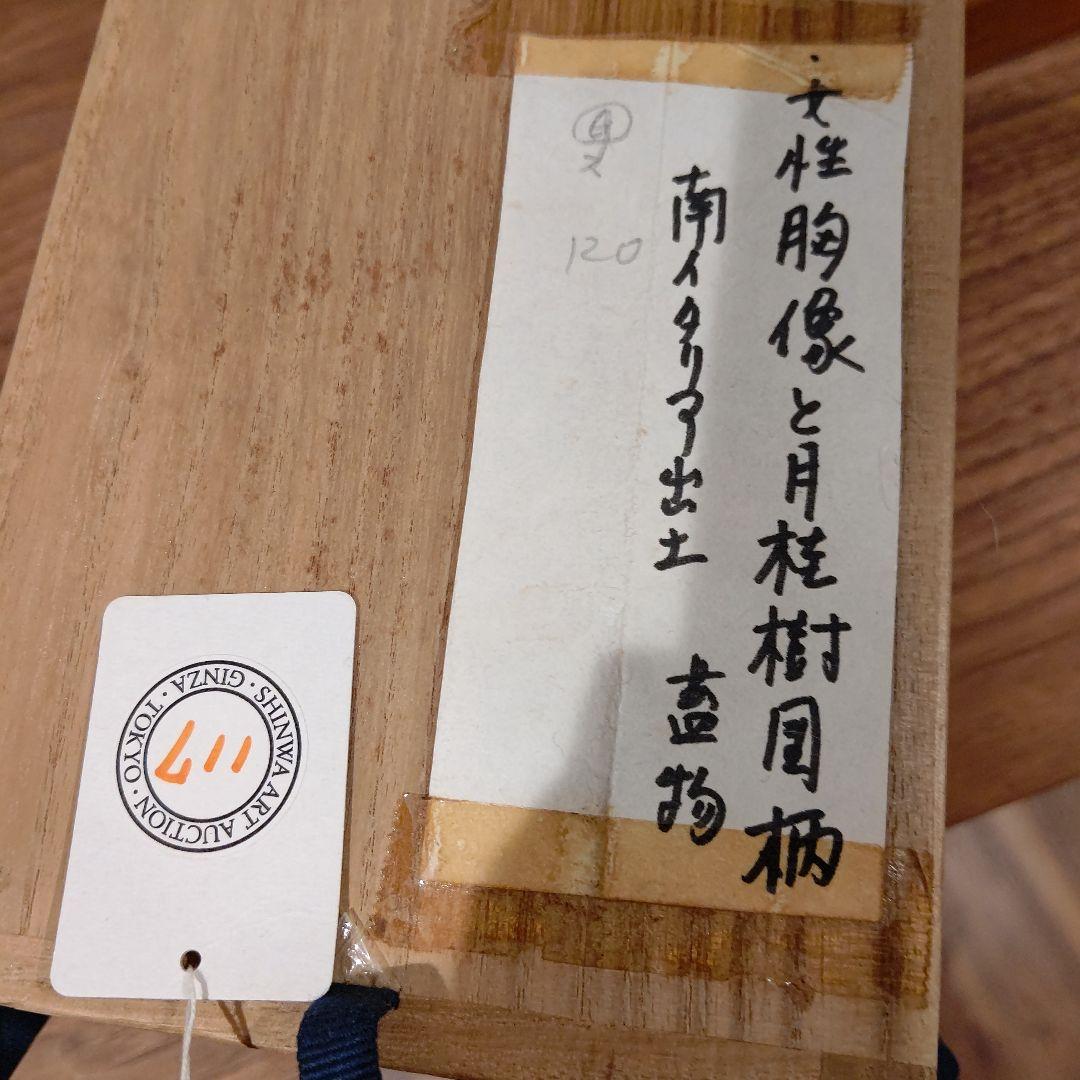 ・女性胸像と月桂樹図柄
南イタリア出土 蓋物
120
SHINWA ART AUCTION · GINZA · TOKYO ·
117